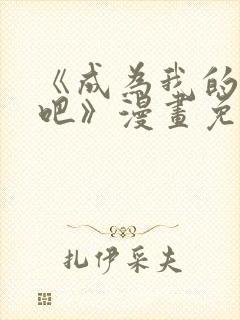 《成为我的
吧》漫畫免
扎伊采夫